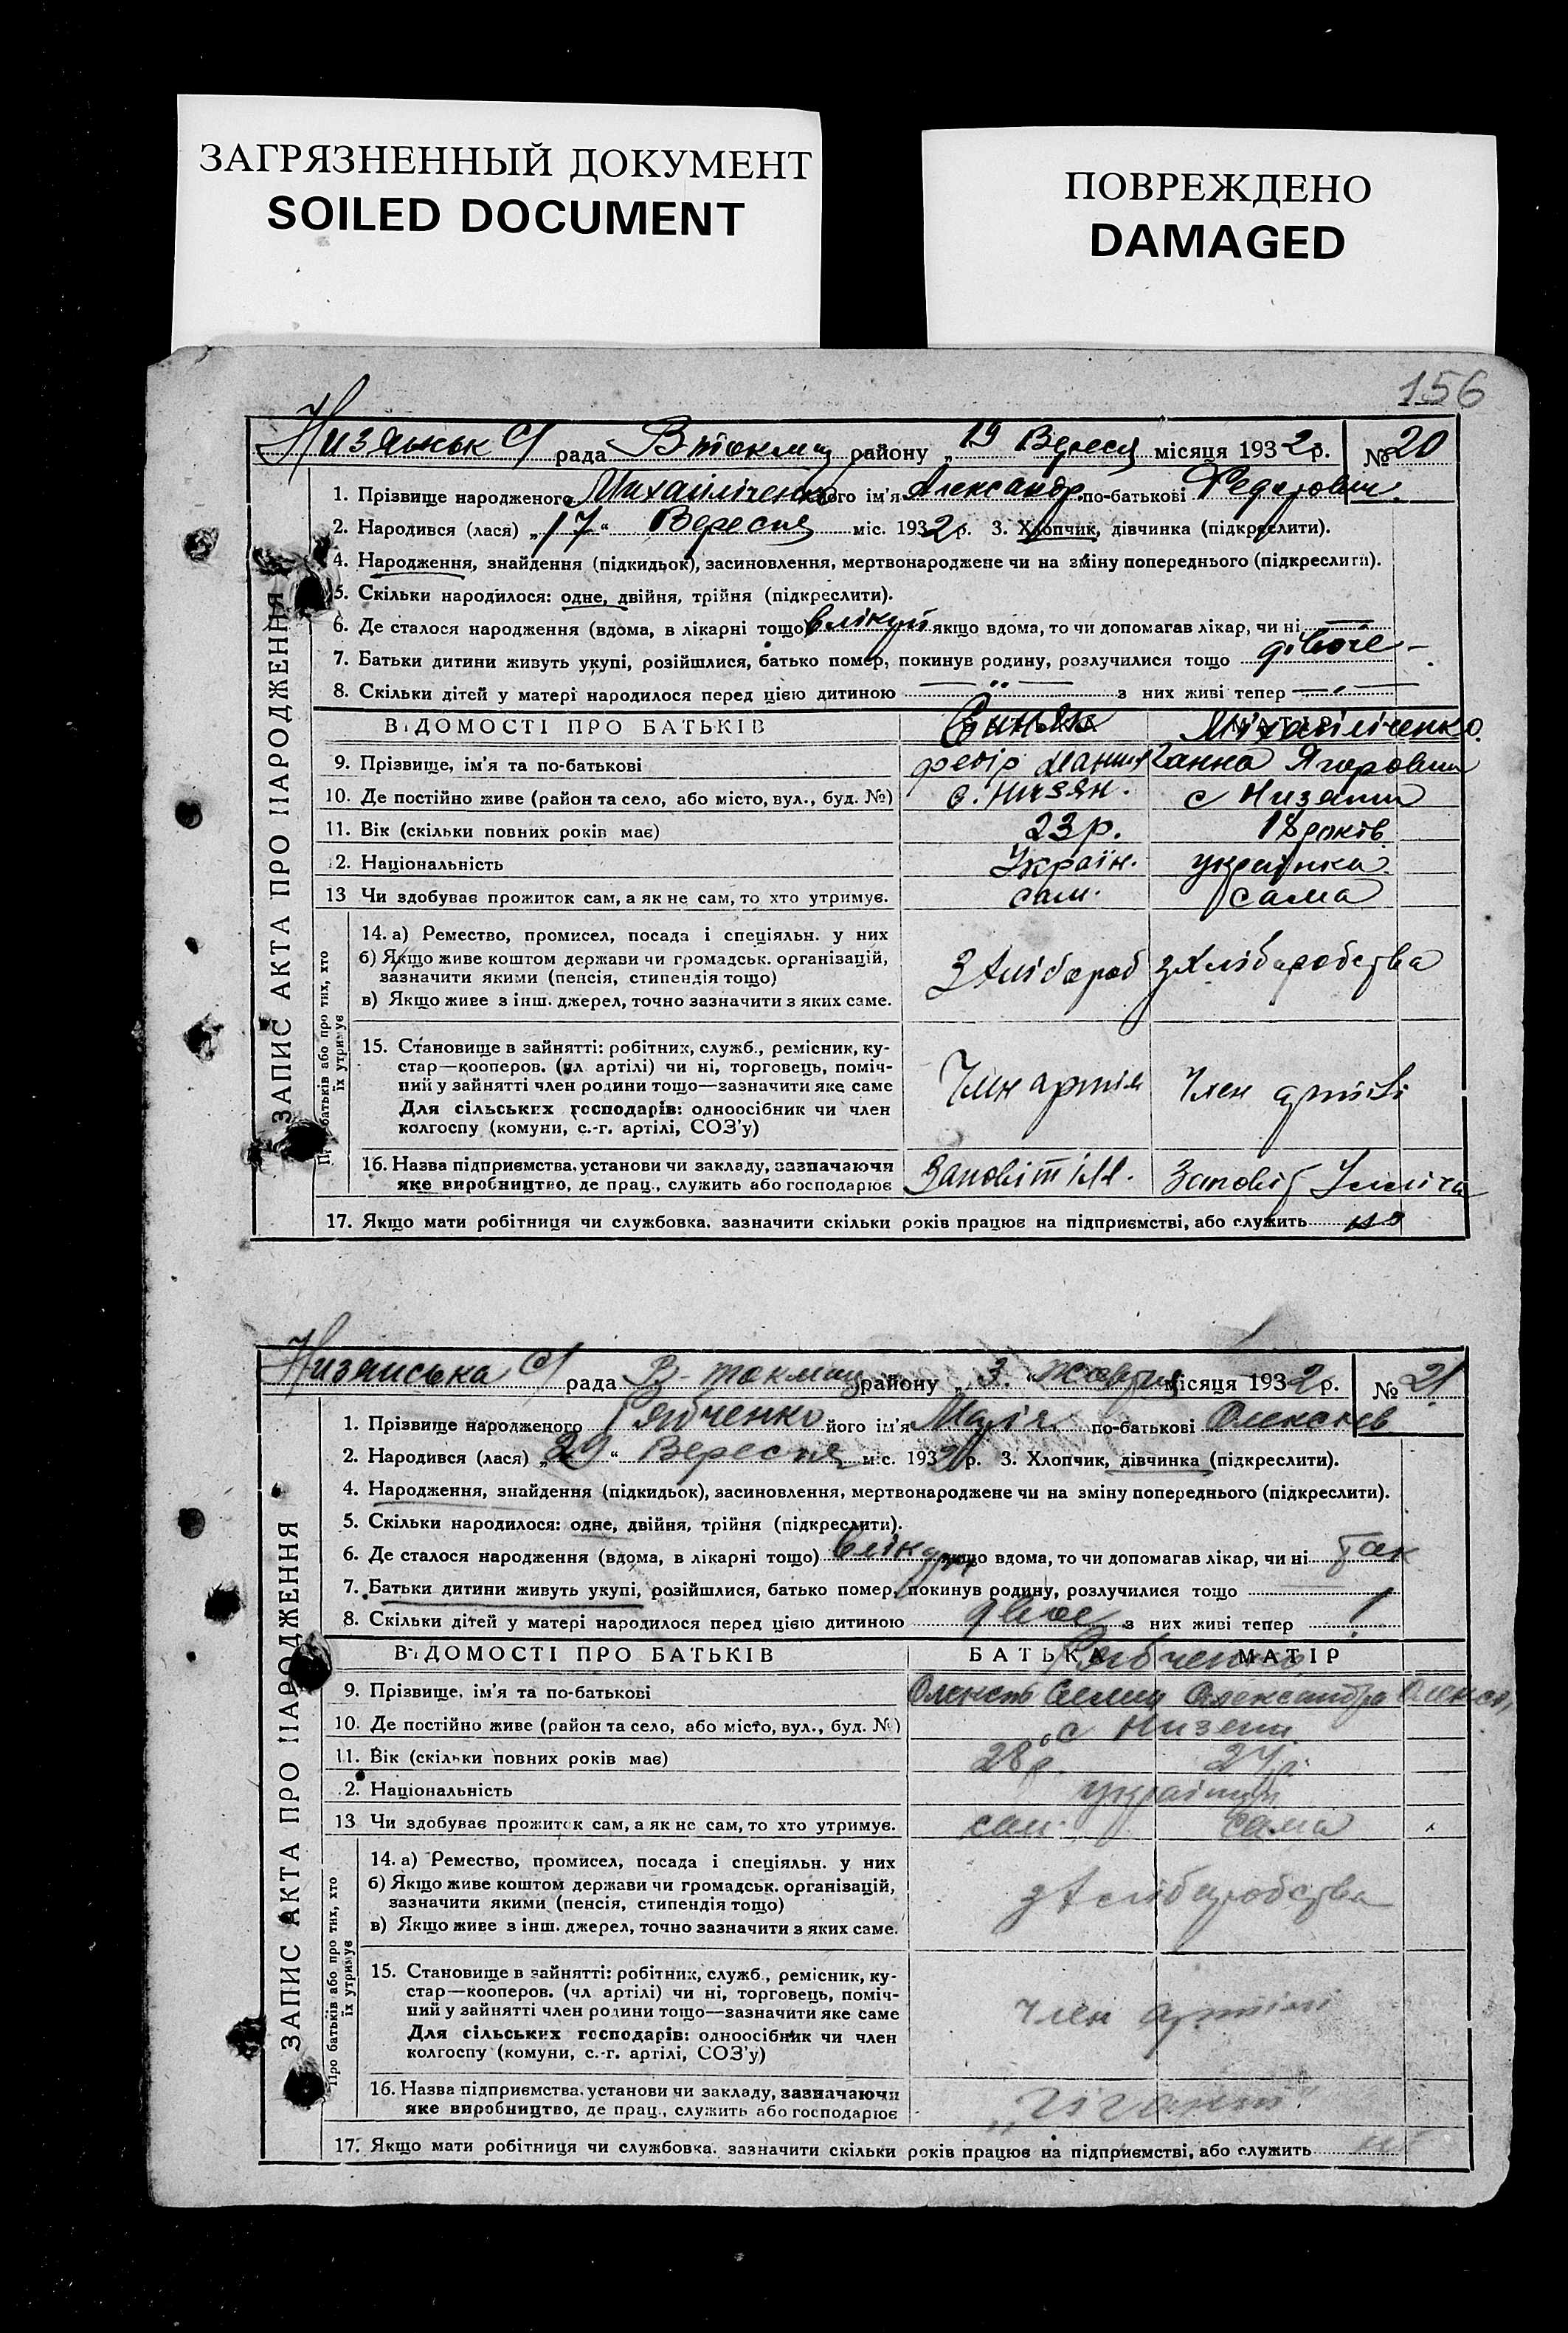 ЗАГРЯЗНЕННЫЙ ДОКУМЕНТ
SOILED DOCUMENT
ПОВРЕЖДЕНО
DAMAGED
156
ЗАПИС АКТА ПРО НАРОДЖЕННЯ
Низяньск С/ рада В токмац району „19 Вересн місяця 1932 р. № 20
1. Прізвище народженого Михайліченко його ім'я Александр по-батькові Федорович.
2. Народився (лася) „17“ Вересня міс. 1932 р. 3. Хлопчик, дівчинка (підкреслити).
4. Народження, знайдення (підкидьок), засиновлення, мертвонароджене чи на зміну попереднього (підкреслити).
5. Скільки народилося: одне, двійня, трійня (підкреслити).
6. Де сталося народження (вдома, в лікарні тощо) якщо вдома, то чи допомагав лікар, чи ні —
7. Батьки дитини живуть укупі, розійшлися, батько помер, покинув родину, розлучилися тощо
8. Скільки дітей у матері народилося перед цією дитиною з них живі тепер
ВІДОМОСТІ ПРО БАТЬКІВ Михайліченко
9. Прізвище, ім'я та по-батькові федір Ганна Ягоровна
10. Де постійно живе (район та село, або місто, вул., буд. №) с. Низян. с Низяни
11. Вік (скільки повних років має) 23 р. 18 років
12. Національність Україн. українка
13 Чи здобуває прожиток сам, а як не сам, то хто утримує. сам. сама
Про батьків або про тих, хто їх утримує
14. а) Ремество, промисел, посада і спеціяльн. у них
б) Якщо живе коштом держави чи громадськ. організацій,
зазначити якими (пенсія, стипендія тощо)
в) Якщо живе з інш. джерел, точно зазначити з яких саме.
З хлібороб з хліборобства
15. Становище в зайнятті: робітник, служб., ремісник, ку-
стар—кооперов. (чл артілі) чи ні, торговець, поміч-
ний у зайнятті член родини тощо—зазначити яке саме
Для сільських господарів: одноосібник чи член
колгоспу (комуни, с.-г. артілі, СОЗ'у)
Член артіл Член артілі
16. Назва підприємства, установи чи закладу, зазначаючи
яке виробництво, де прац., служить або господарює
Заповіт Іл. Заповіт Ілліча
17. Якщо мати робітниця чи службовка, зазначити скільки років працює на підприємстві, або служить
ЗАПИС АКТА ПРО НАРОДЖЕННЯ
Низянська С/ рада В-токмац району „3“ жовтня місяця 1932 р. № 21
1. Прізвище народженого Рябченко його ім'я Марія по-батькові Олексіев
2. Народився (лася) „29“ Вересня міс. 1932 р. 3. Хлопчик, дівчинка (підкреслити).
4. Народження, знайдення (підкидьок), засиновлення, мертвонароджене чи на зміну попереднього (підкреслити).
5. Скільки народилося: одне, двійня, трійня (підкреслити).
6. Де сталося народження (вдома, в лікарні тощо) якщо вдома, то чи допомагав лікар, чи ні так
7. Батьки дитини живуть укупі, розійшлися, батько помер, покинув родину, розлучилися тощо
8. Скільки дітей у матері народилося перед цією дитиною двое з них живі тепер 1
ВІДОМОСТІ ПРО БАТЬКІВ БАТЬКА МАТІР
Рябченко
9. Прізвище, ім'я та по-батькові Олексій Александра
10. Де постійно живе (район та село, або місто, вул., буд. №) с Низени
11. Вік (скільки повних років має) 28 р. 27 р.
12. Національність українці
13 Чи здобуває прожиток сам, а як не сам, то хто утримує. сам сама
Про батьків або про тих, хто їх утримує
14. а) Ремество, промисел, посада і спеціяльн. у них
б) Якщо живе коштом держави чи громадськ. організацій,
зазначити якими (пенсія, стипендія тощо)
в) Якщо живе з інш. джерел, точно зазначити з яких саме.
з хліборобства
15. Становище в зайнятті: робітник, служб., ремісник, ку-
стар—кооперов. (чл артілі) чи ні, торговець, поміч-
ний у зайнятті член родини тощо—зазначити яке саме
Для сільських господарів: одноосібник чи член
колгоспу (комуни, с.-г. артілі, СОЗ'у)
член артілі
16. Назва підприємства, установи чи закладу, зазначаючи
яке виробництво, де прац., служить або господарює
„гігант“
17. Якщо мати робітниця чи службовка, зазначити скільки років працює на підприємстві, або служить